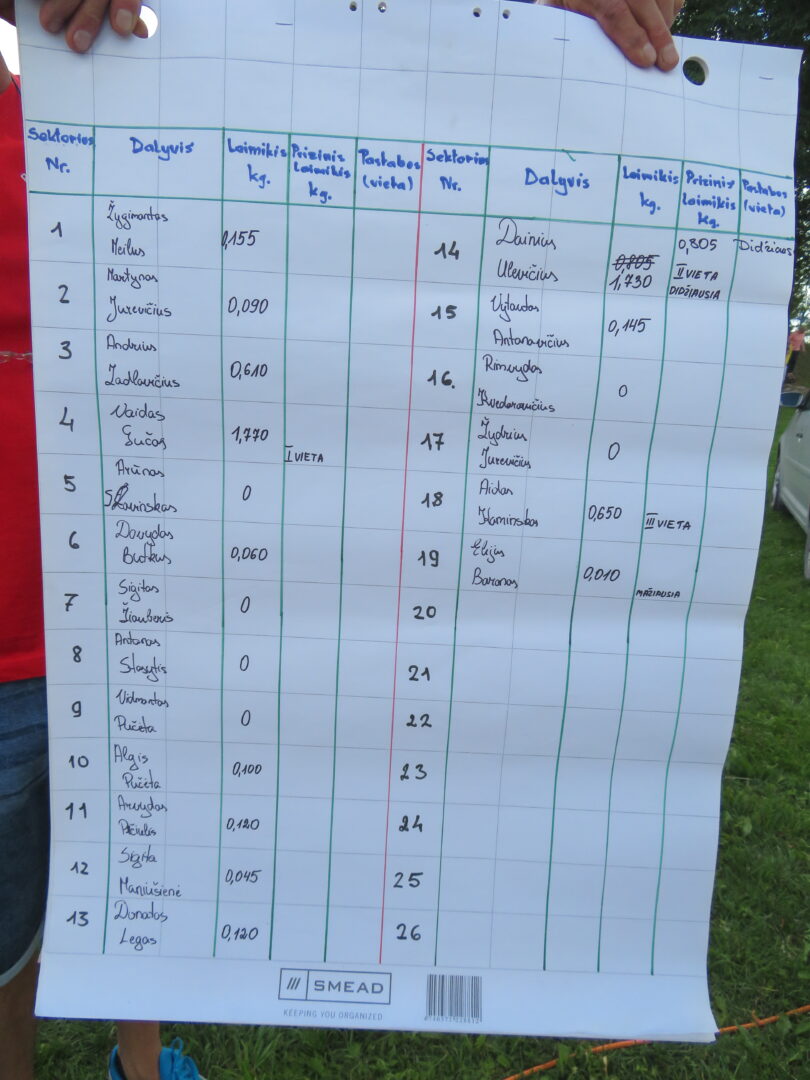 Sektorius Nr. Dalyvis Laimikis kg. Prizinis Laimikis kg. Pastabos (vieta)
1 Žygimantas Meilus 0,155
2 Martynas Jurevičius 0,090
3 Andrius Zadlavičius 0,610
4 Vaidas Gučas 1,770 I VIETA
5 Arūnas 0
6 Dovydas Butkus 0,060
7 Sigitas 0
8 Antanas Stasytis 0
9 Vidmantas Pučėta 0
10 Algis Pučėta 0,100
11 Arvydas 0,120
12 Sigita Maniušienė 0,045
13 Donatas Legas 0,120
Sektorius Nr. Dalyvis Laimikis kg. Prizinis Laimikis kg. Pastabos (vieta)
14 Dainius Ulevičius 0,805 1,730 0,805 II VIETA DIDŽIAUSIA Didžiausis
15 Vytautas Antanavičius 0,145
16. Rimvydas Kvedaravičius 0
17 Žydrius Jurevičius 0
18 Aidas Kaminskas 0,650 III VIETA
19 Elijus Baranas 0,010 MAŽIAUSIA
20
21
22
23
24
25
26
SMEAD
KEEPING YOU ORGANIZED